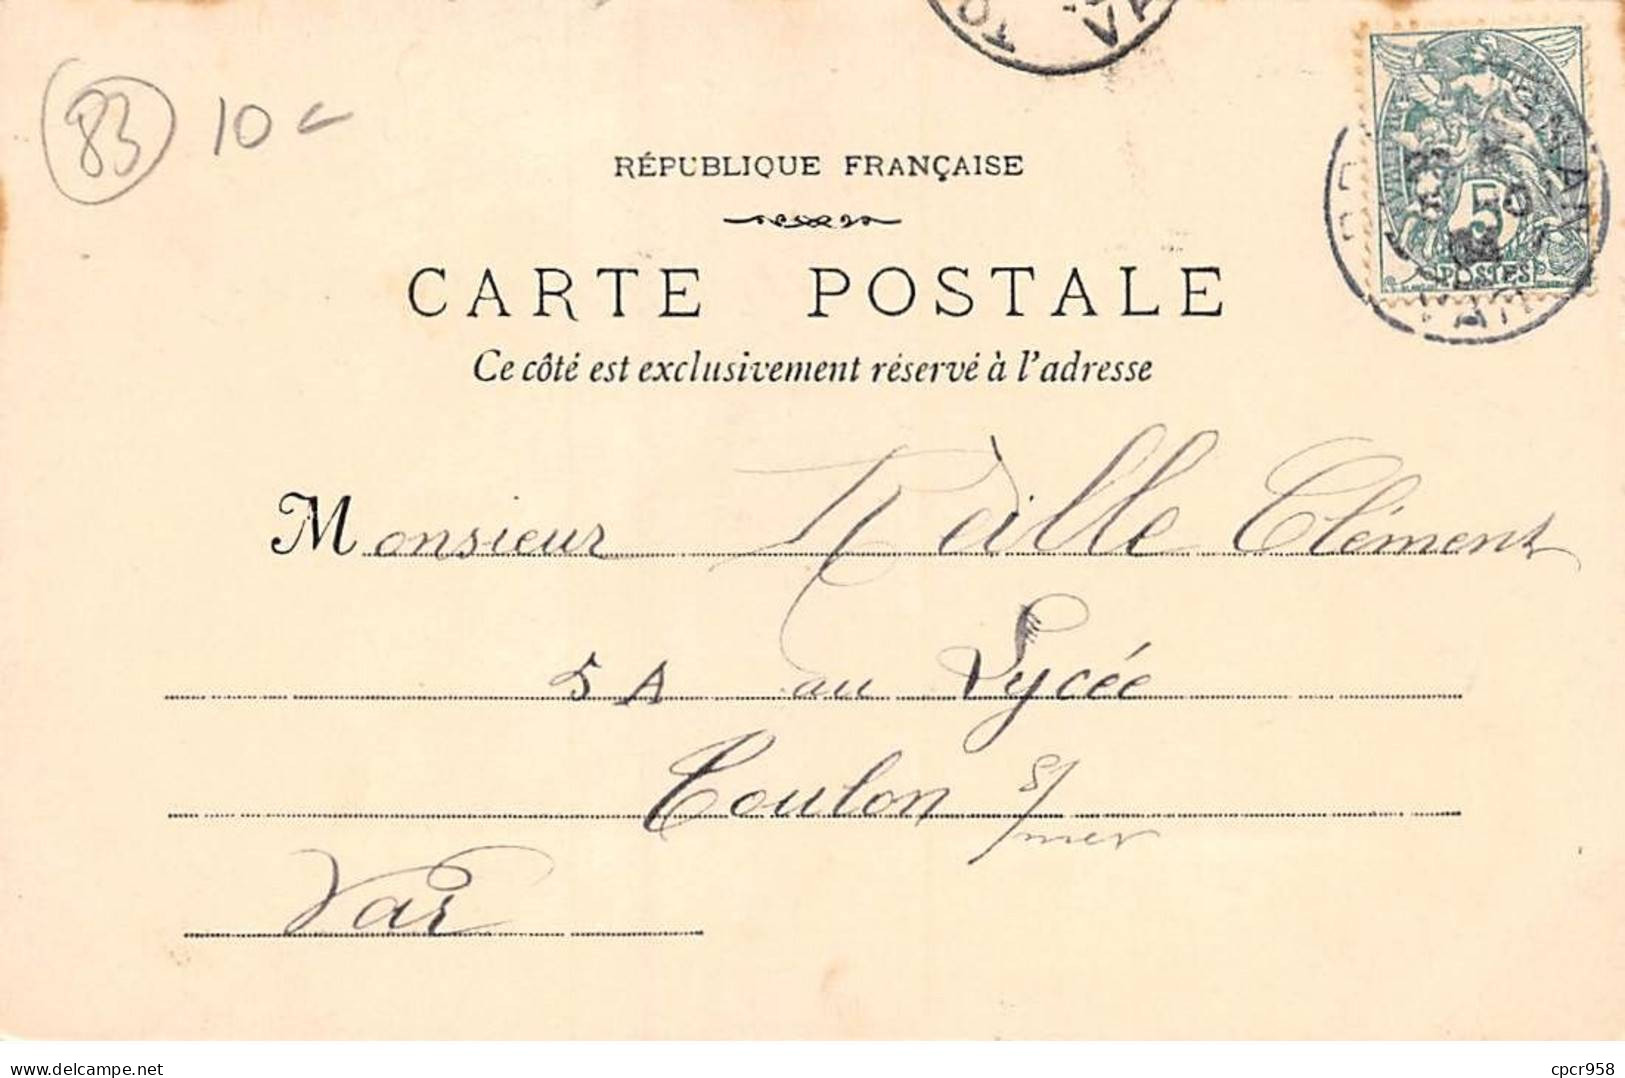 83
10
RÉPUBLIQUE FRANÇAISE
CARTE POSTALE
Ce côté est exclusivement réservé à l'adresse
5
POSTES
VAR
Monsieur Reille Clément
5 A au Lycée
Toulon s/
mer
Var
www.delcampe.net
cpcr958